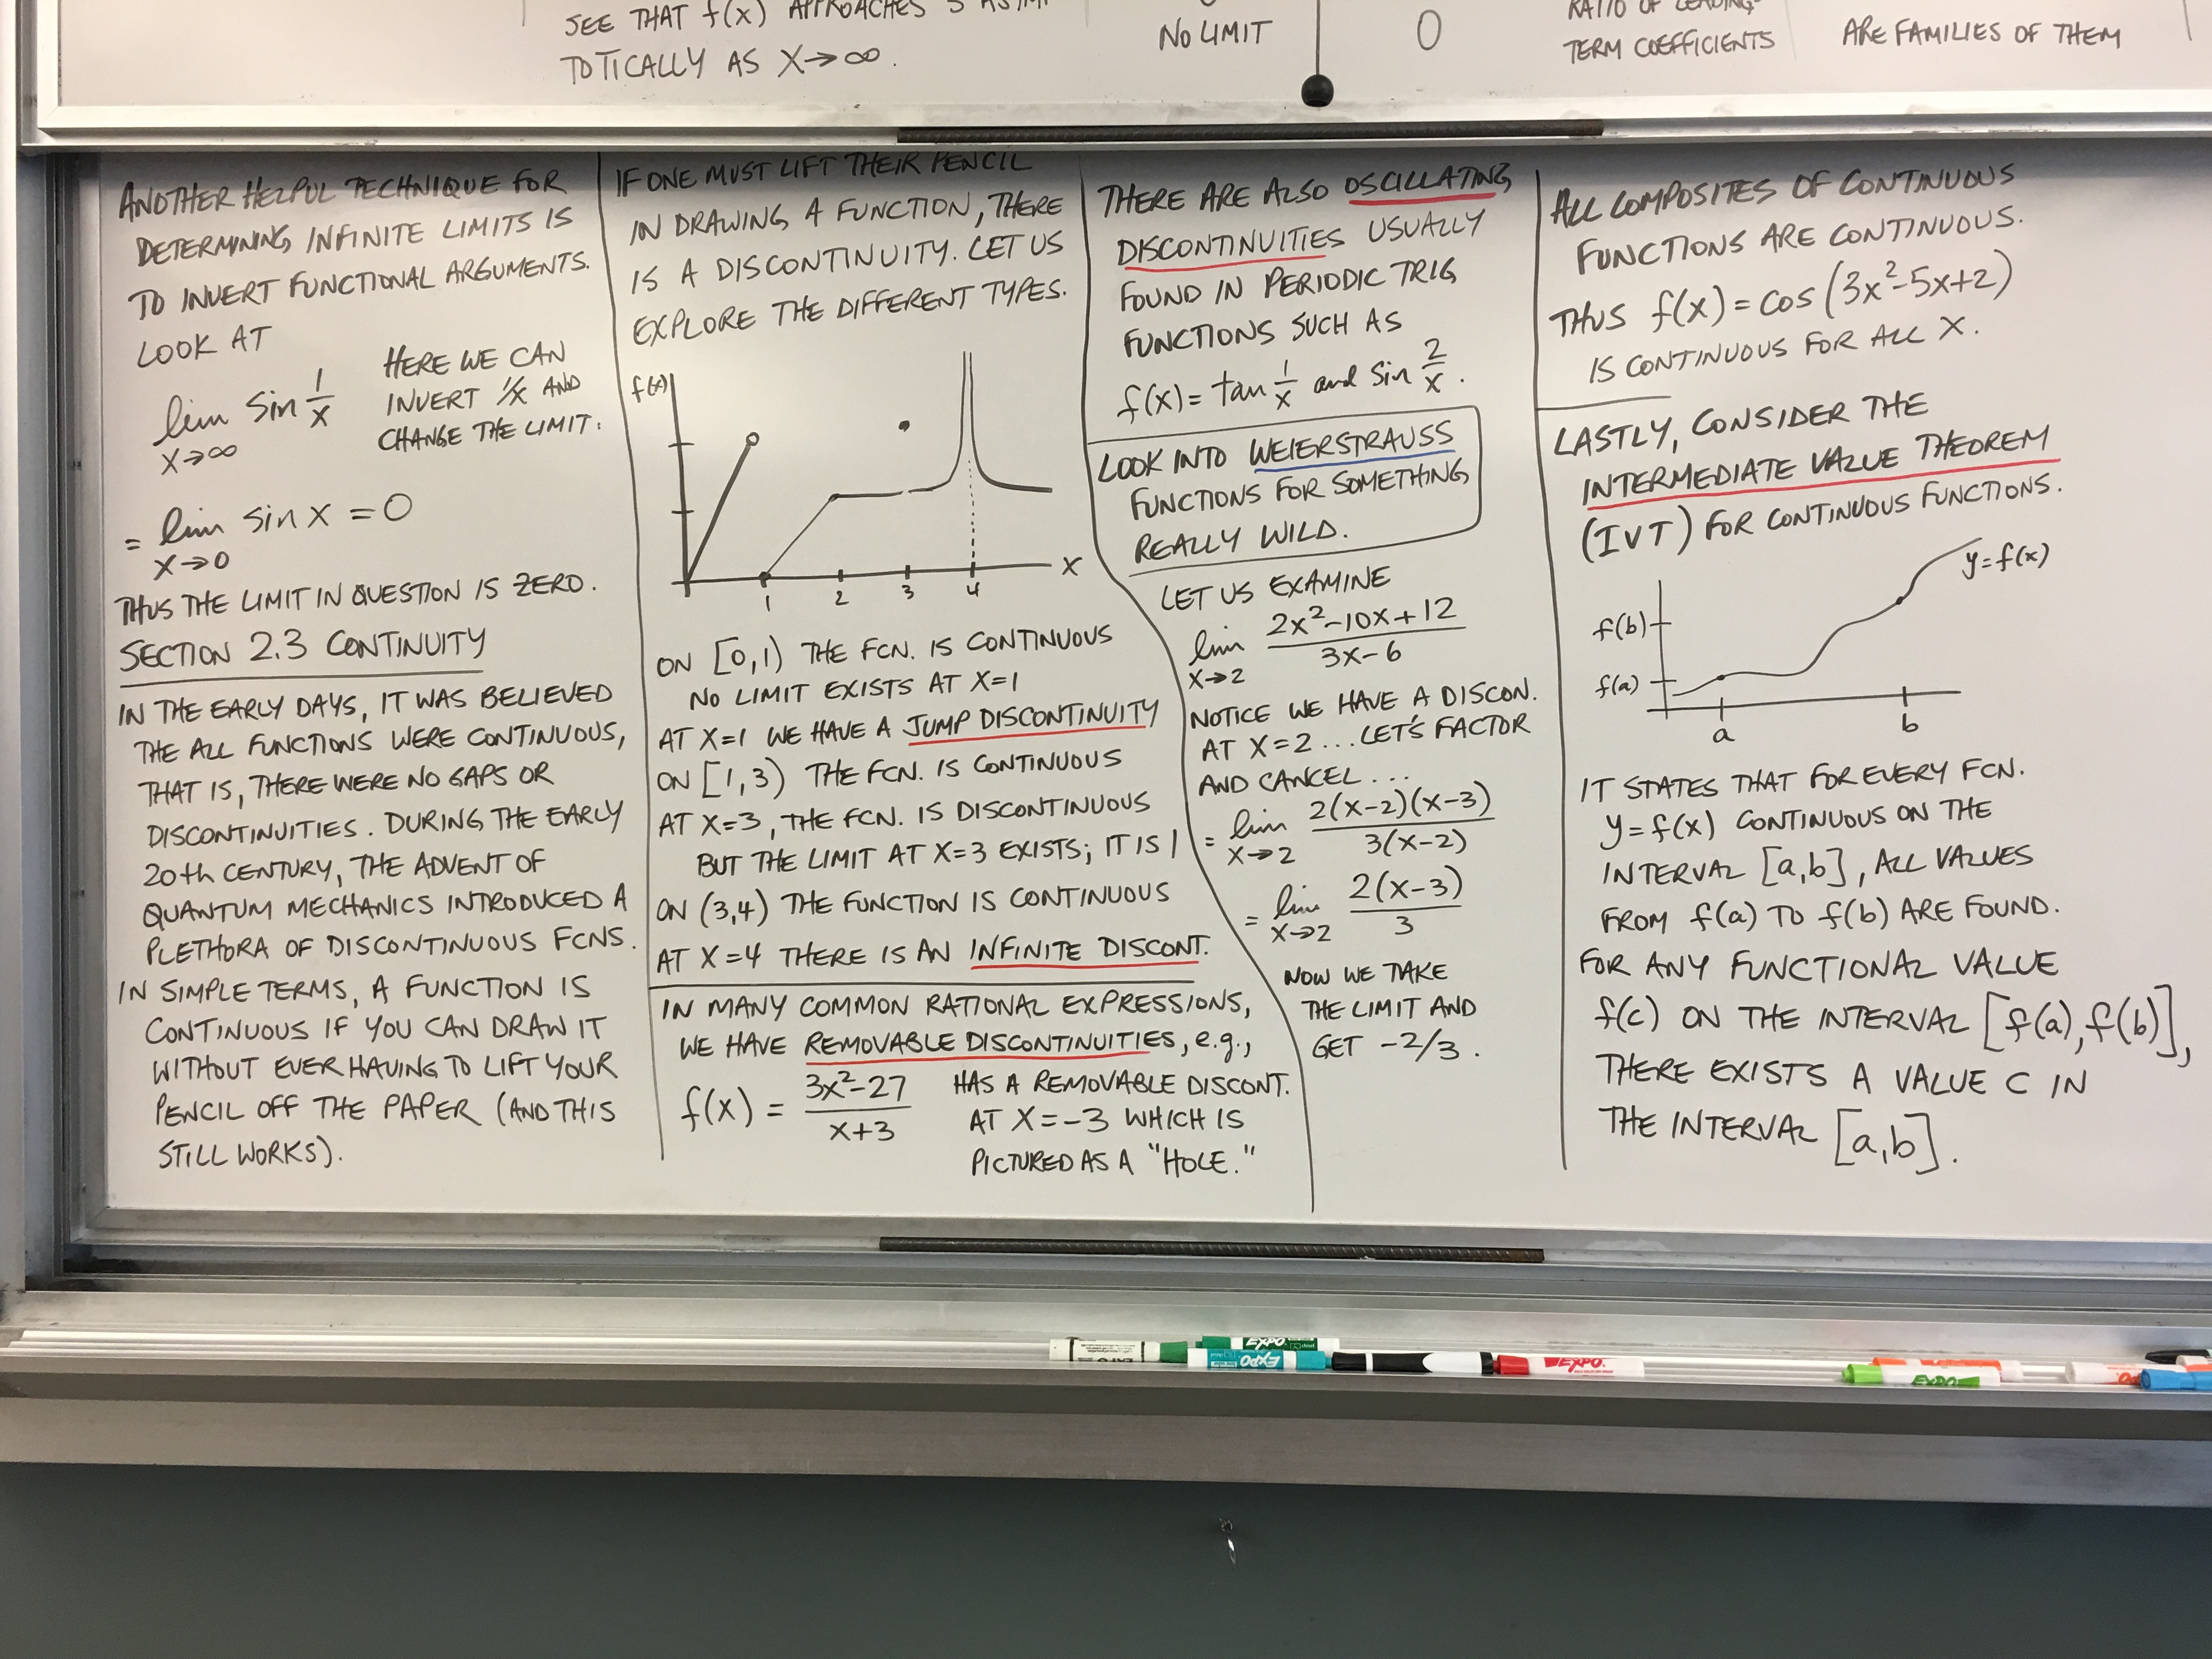 SEE THAT f(x) APPROACHES
TOTICALLY AS X→∞.
NO LIMIT
0
RATIO OF LEADING
TERM COEFFICIENTS
ARE FAMILIES OF THEM
ANOTHER HELPUL TECHNIQUE FOR
DETERMINING INFINITE LIMITS IS
TO INVERT FUNCTIONAL ARGUMENTS.
LOOK AT
lim sin 1/x
X→∞
HERE WE CAN
INVERT 1/x AND
CHANGE THE LIMIT:
= lim sin X = 0
X→0
THUS THE LIMIT IN QUESTION IS ZERO.
SECTION 2.3 CONTINUITY
IN THE EARLY DAYS, IT WAS BELIEVED
THE ALL FUNCTIONS WERE CONTINUOUS,
THAT IS, THERE WERE NO GAPS OR
DISCONTINUITIES. DURING THE EARLY
20th CENTURY, THE ADVENT OF
QUANTUM MECHANICS INTRODUCED A
PLETHORA OF DISCONTINUOUS FCNS.
IN SIMPLE TERMS, A FUNCTION IS
CONTINUOUS IF YOU CAN DRAW IT
WITHOUT EVER HAVING TO LIFT YOUR
PENCIL OFF THE PAPER (AND THIS
STILL WORKS).
IF ONE MUST LIFT THEIR PENCIL
IN DRAWING A FUNCTION, THERE
IS A DISCONTINUITY. LET US
EXPLORE THE DIFFERENT TYPES.
f(x)
X
1 2 3 4
ON [0,1) THE FCN. IS CONTINUOUS
NO LIMIT EXISTS AT X=1
AT X=1 WE HAVE A JUMP DISCONTINUITY
ON [1,3) THE FCN. IS CONTINUOUS
AT X=3, THE FCN. IS DISCONTINUOUS
BUT THE LIMIT AT X=3 EXISTS; IT IS 1
ON (3,4) THE FUNCTION IS CONTINUOUS
AT X=4 THERE IS AN INFINITE DISCONT.
IN MANY COMMON RATIONAL EXPRESSIONS,
WE HAVE REMOVABLE DISCONTINUITIES, e.g.,
f(x) = 3x²-27 / x+3
HAS A REMOVABLE DISCONT.
AT X=-3 WHICH IS
PICTURED AS A "HOLE."
THERE ARE ALSO OSCILLATING
DISCONTINUITIES USUALLY
FOUND IN PERIODIC TRIG
FUNCTIONS SUCH AS
f(x) = tan 1/x and sin 2/x.
LOOK INTO WEIERSTRAUSS
FUNCTIONS FOR SOMETHING
REALLY WILD.
LET US EXAMINE
lim 2x²-10x+12 / 3x-6
X→2
NOTICE WE HAVE A DISCON.
AT X=2... LET'S FACTOR
AND CANCEL...
= lim 2(x-2)(x-3) / 3(x-2)
X→2
= lim 2(x-3) / 3
X→2
NOW WE TAKE
THE LIMIT AND
GET -2/3.
ALL COMPOSITES OF CONTINUOUS
FUNCTIONS ARE CONTINUOUS.
THUS f(x) = cos(3x²-5x+2)
IS CONTINUOUS FOR ALL X.
LASTLY, CONSIDER THE
INTERMEDIATE VALUE THEOREM
(IVT) FOR CONTINUOUS FUNCTIONS.
y=f(x)
f(b)
f(a)
a
b
IT STATES THAT FOR EVERY FCN.
y=f(x) CONTINUOUS ON THE
INTERVAL [a,b], ALL VALUES
FROM f(a) TO f(b) ARE FOUND.
FOR ANY FUNCTIONAL VALUE
f(c) ON THE INTERVAL [f(a), f(b)],
THERE EXISTS A VALUE C IN
THE INTERVAL [a,b].
EXPO
EXPO
EXPO
EXPO
EXPO